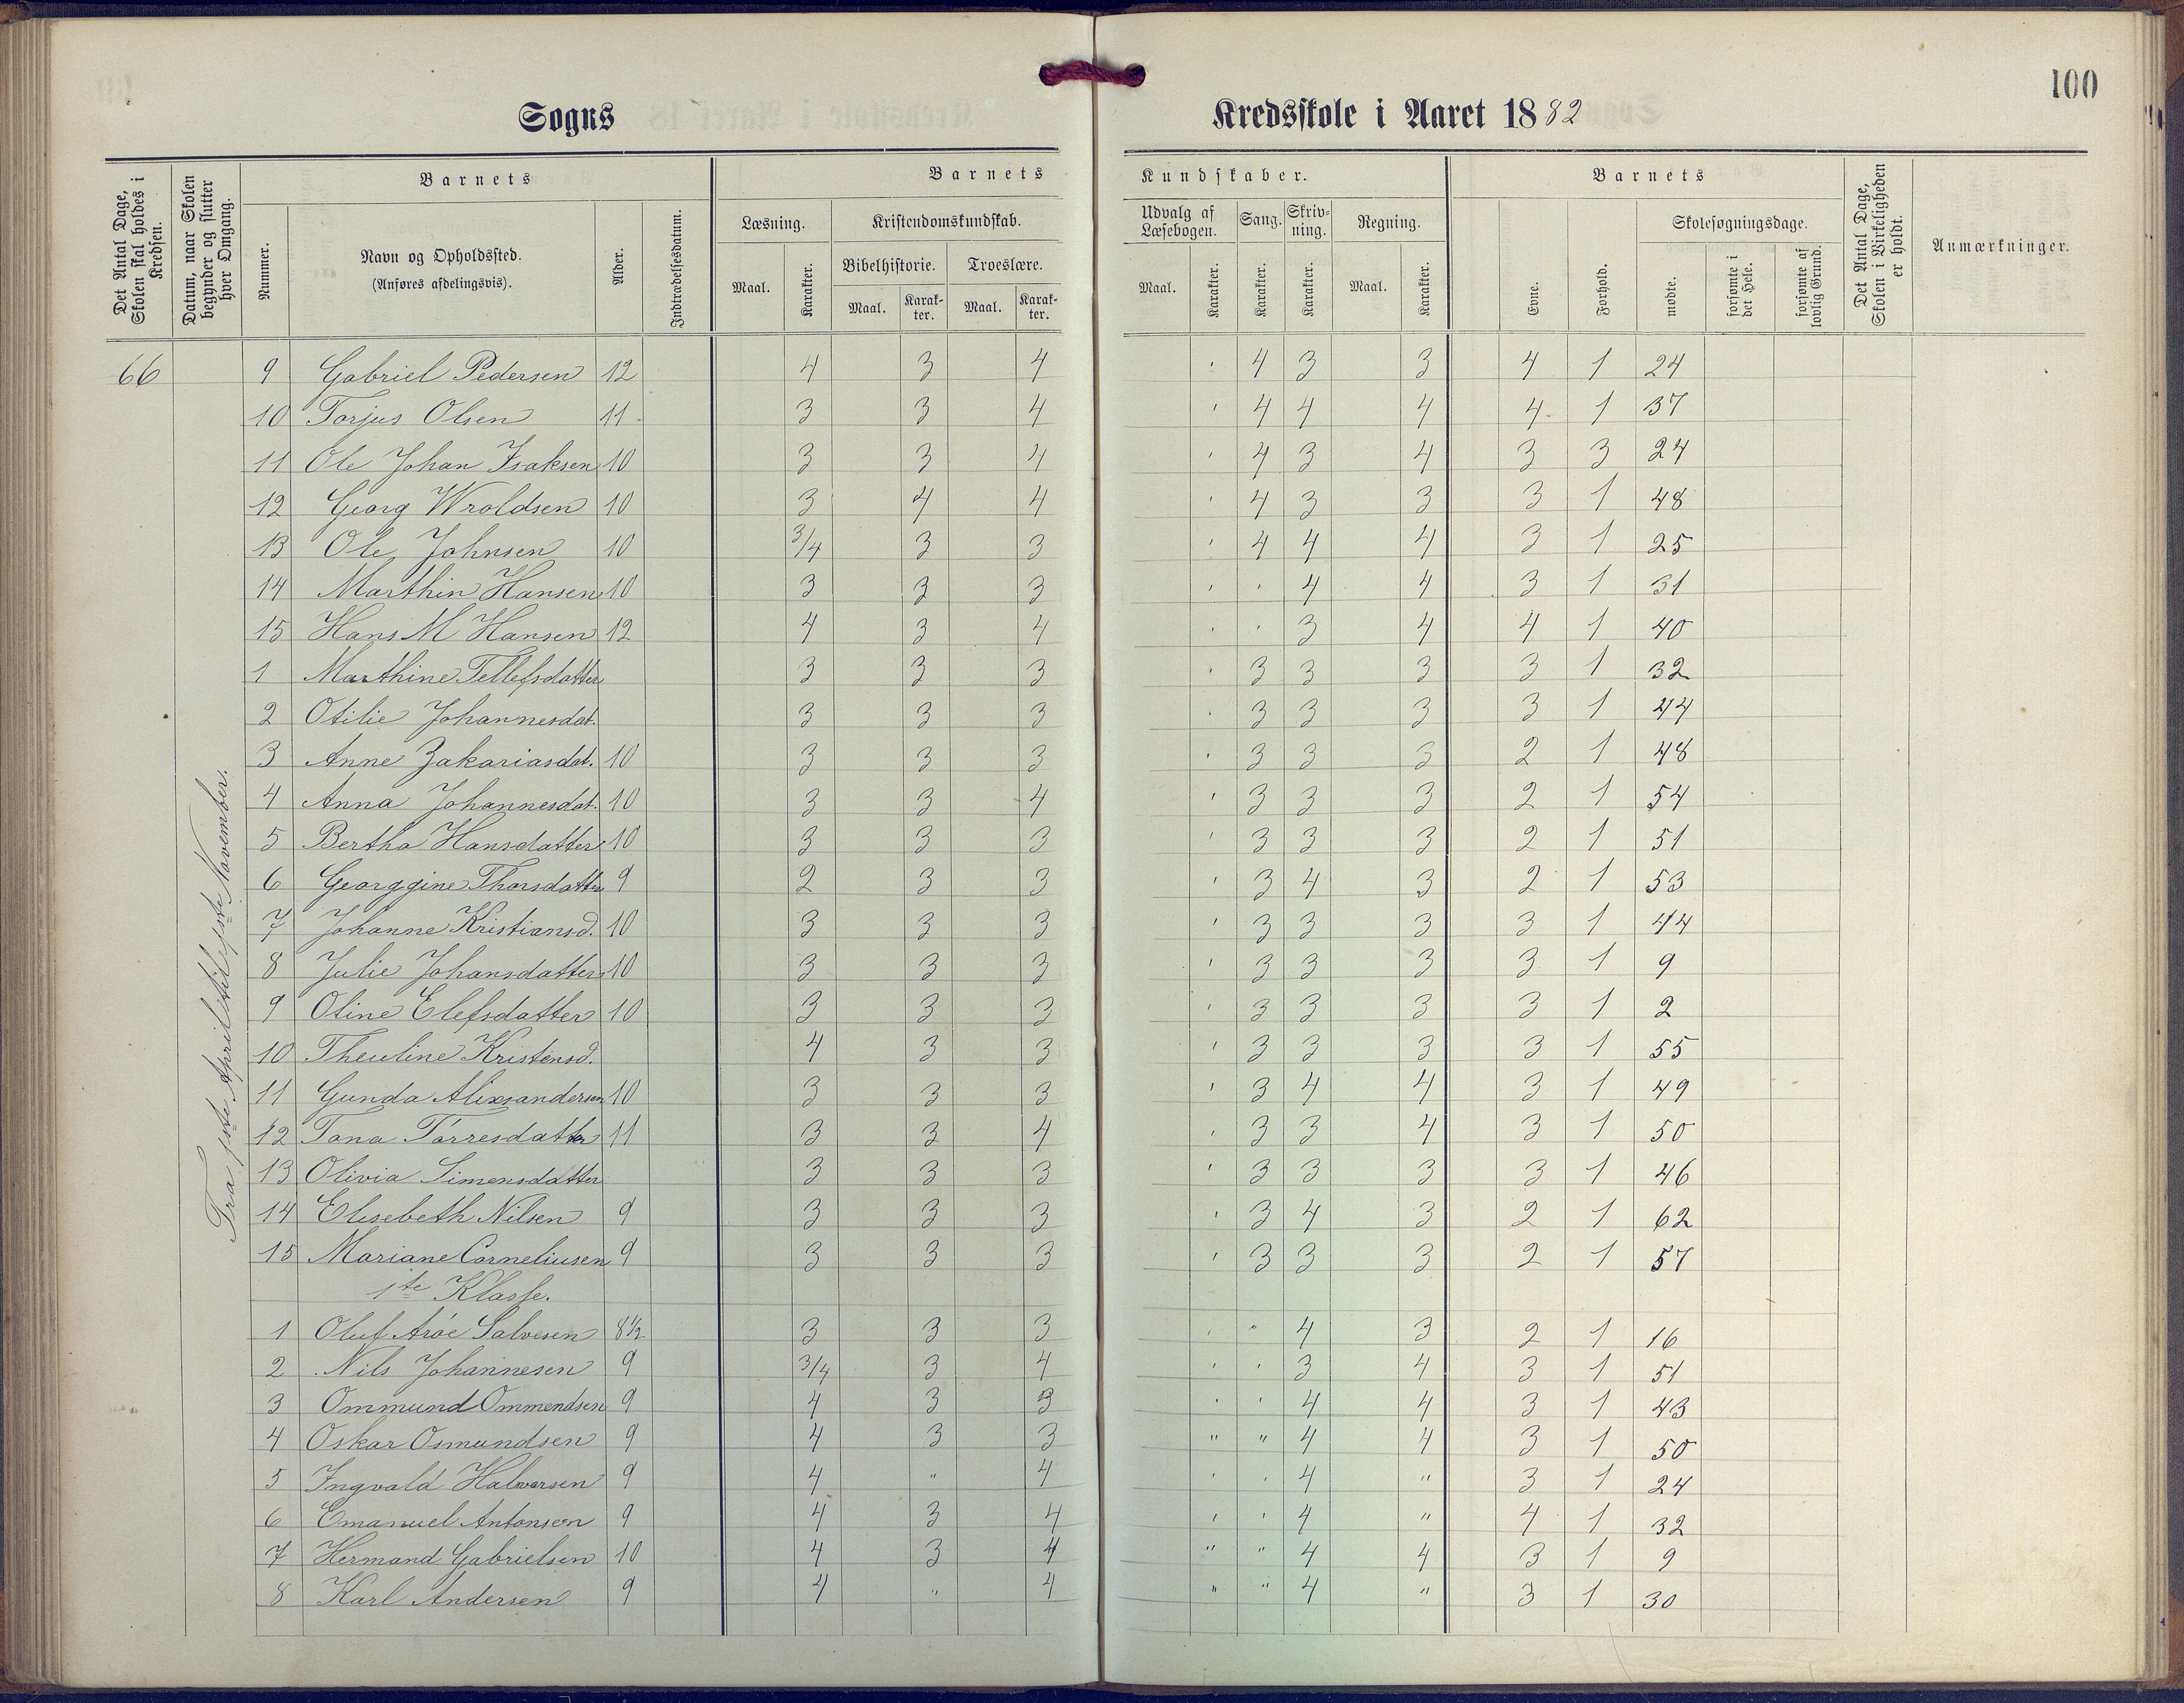 100
Sogns Kredsskole i Aaret 1882
Det Antal Dage, Skolen skal holdes i Kredsen.
Datum, naar Skolen begynder og slutter hver Omgang.
Barnets
Nummer.
Navn og Opholdssted.
(Anføres afdelingsvis).
Alder.
Indtrædelsesdatum.
Barnets Kundskaber.
Læsning.
Maal. Karakter.
Kristendomskundskab.
Bibelhistorie. Troeslære.
Maal. Karakter. Maal. Karakter.
Udvalg af Læsebogen.
Maal. Karakter.
Sang.
Karakter.
Skrivning.
Karakter.
Regning.
Maal. Karakter.
Barnets
Evne. Forhold.
Skolesøgningsdage.
mødte. forsømte i det Hele. forsømte af lovlig Grund.
Det Antal Dage, Skolen i Virkeligheden er holdt.
Anmærkninger.
66
Fra 1ste April til 1ste November.
9 Gabriel Pedersen 12 4 3 4 ' 4 3 3 4 1 24
10 Torjus Olsen 11 3 3 4 ' 4 4 4 4 1 37
11 Ole Johan Isaksen 10 3 3 4 ' 4 3 4 3 3 24
12 Georg Wroldsen 10 3 4 4 ' 4 3 3 3 1 48
13 Ole Johnsen 10 3/4 3 3 ' 4 4 4 3 1 25
14 Marthin Hansen 10 3 3 3 ' ' 4 4 3 1 31
15 Hans M Hansen 12 4 3 4 ' ' 3 4 4 1 40
1 Marthine Tellefsdatter 3 3 3 ' 3 3 3 3 1 32
2 Otilie Johannesdat. 3 3 3 ' 3 3 3 3 1 44
3 Anne Zakariasdat. 10 3 3 3 ' 3 3 3 2 1 48
4 Anna Johannesdat. 10 3 3 4 ' 3 3 3 2 1 54
5 Bertha Hansdatter 10 3 3 3 ' 3 3 3 2 1 51
6 Georggine Thorsdatter 9 2 3 3 ' 3 4 3 2 1 53
7 Johanne Kristiansd. 10 3 3 3 ' 3 3 3 3 1 44
8 Julie Johansdatter 10 3 3 3 ' 3 3 3 3 1 9
9 Oline Elefsdatter 10 3 3 3 ' 3 3 3 3 1 2
10 Theuline Kristensd. 4 3 3 ' 3 3 3 3 1 55
11 Gunda Alixsandersen 10 3 3 3 ' 3 4 4 3 1 49
12 Tona Tørresdatter 11 3 3 4 ' 3 3 4 3 1 50
13 Olivia Simensdatter 3 3 3 ' 3 3 3 3 1 46
14 Elisebeth Nilsen 9 3 3 3 ' 3 4 3 2 1 62
15 Mariane Corneliusen 9 3 3 3 ' 3 3 3 2 1 57
1te Klasse.
1 Oluf Arøe Salvesen 8½ 3 3 3 ' " 4 3 2 1 16
2 Nils Johannesen 9 3/4 3 4 ' ' 3 4 3 1 51
3 Ommund Ommendsen 9 4 3 3 ' ' 4 4 3 1 43
4 Oskar Osmundsen 9 4 3 3 " " 4 4 3 1 50
5 Ingvald Halvorsen 9 4 " 4 ' ' 4 " 3 1 24
6 Emanuel Antonsen 9 4 3 4 ' ' 4 " 4 1 32
7 Hermand Gabrielsen 10 4 3 4 " " 4 4 3 1 9
8 Karl Andersen 9 4 " 4 " " 4 " 3 1 30